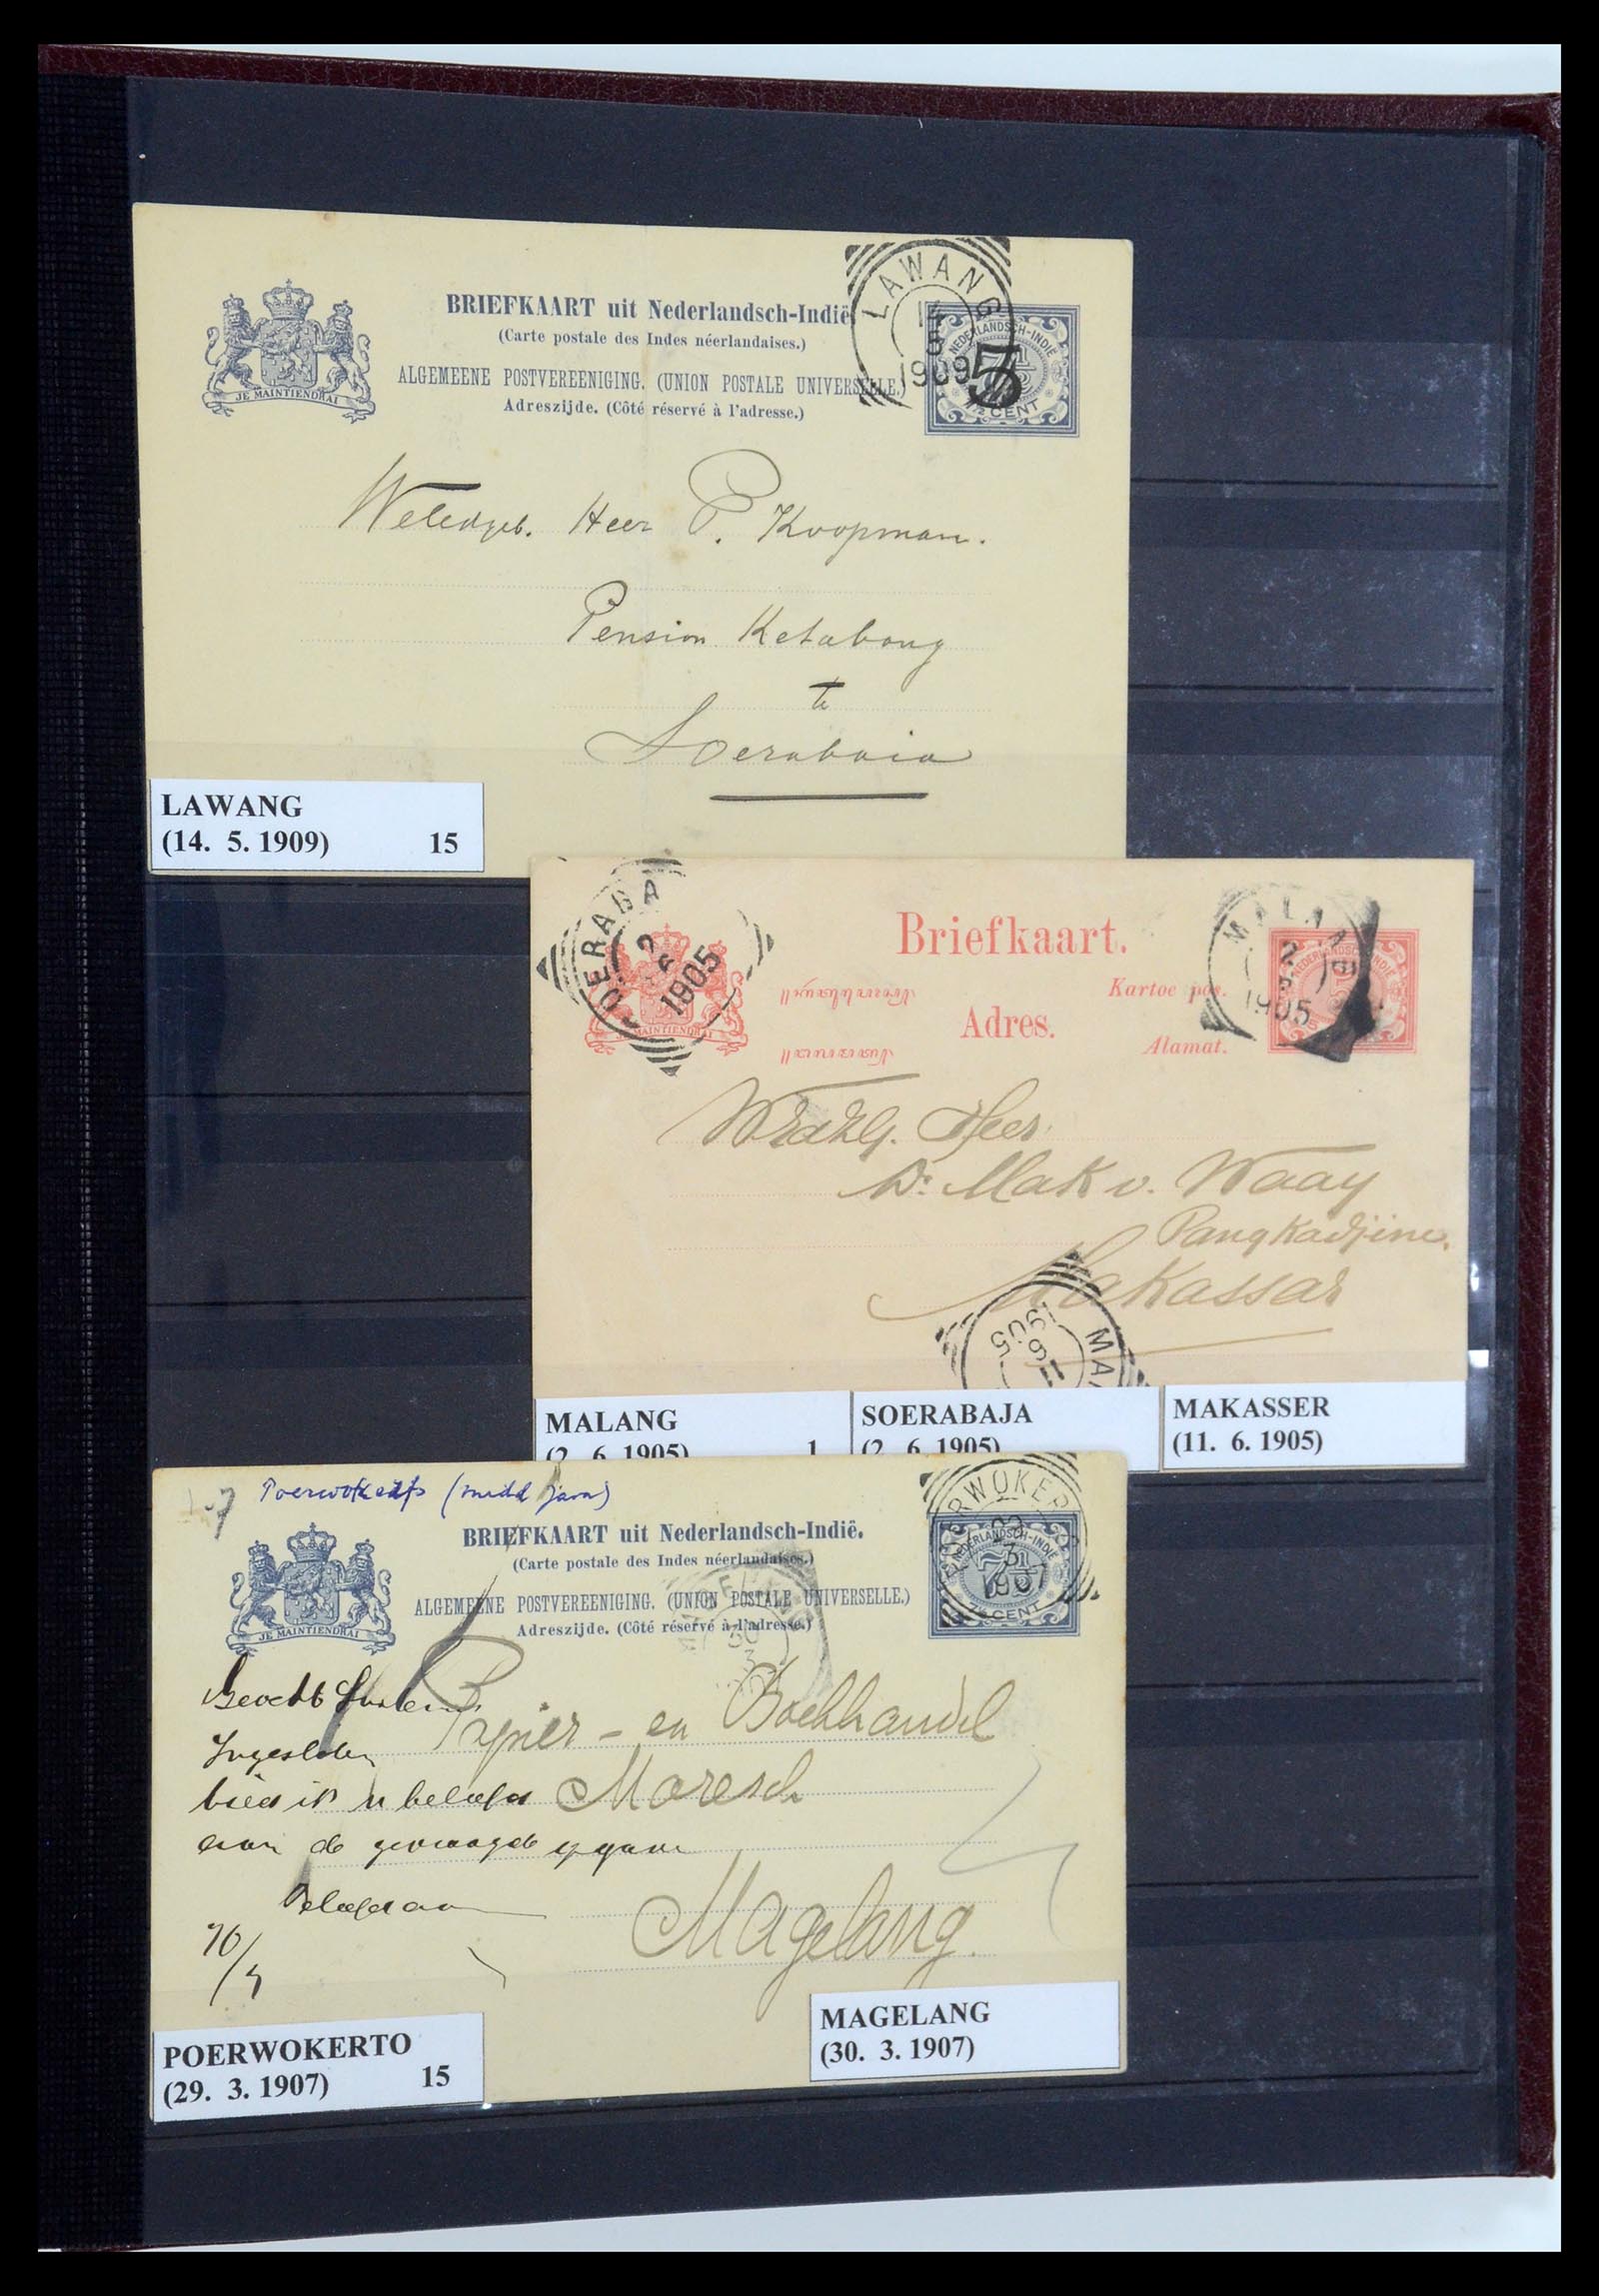 BRIEFKAART uit Nederlandsch-Indië
(Carte postale des Indes néerlandaises.)
ALGEMEENE POSTVEREENIGING. (UNION POSTALE UNIVERSELLE.)
Adreszijde. (Côté réservé à l'adresse.)
JE MAINTIENDRAI
LAWANG
14
5
1909
NEDERLANDSCH-INDIE
5
7½ CENT
Weledgeb. Heer P. Koopman.
Pension Ketabang
te
Soerabaia
LAWANG
(14. 5. 1909) 15
SOERABA
2
6
1905
MAINTIENDRAI
Briefkaart.
Kartoe pos.
Adres.
Alamat.
MALANG
2
6
1905
NEDERLANDSCH-INDIE
Heer
Mak v. Waay
Pangkadjine.
Makassar
1905
6
11
MA
MALANG
(2. 6. 1905) 1
SOERABAJA
(2. 6. 1905)
MAKASSER
(11. 6. 1905)
BRIEFKAART uit Nederlandsch-Indië.
(Carte postale des Indes néerlandaises.)
ALGEMEENE POSTVEREENIGING. (UNION POSTALE UNIVERSELLE.)
Adreszijde. (Côté réservé à l'adresse.)
JE MAINTIENDRAI
POERWOKERTO
29
3
1907
NEDERLANDSCH-INDIE
7½
7½ CENT
30
3
Papier - en Boekhandel
Maresch
Magelang.
aan de gevraagde opgave
MAGELANG
(30. 3. 1907)
POERWOKERTO
(29. 3. 1907) 15